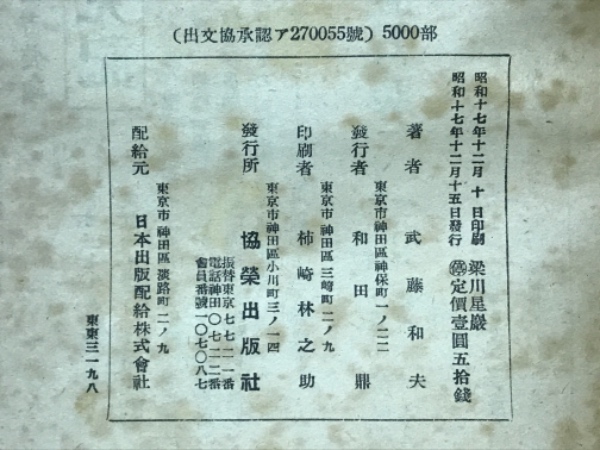 (出文協承認ア270055號) 5000部
昭和十七年十二月 十 日印刷 梁川星巖
昭和十七年十二月十五日發行 定價壹圓五拾錢
著者 武藤和夫
東京市神田區神保町一ノ二二
發行者 和田鼎
東京市神田區三崎町二ノ九
印刷者 柿崎林之助
東京市神田區小川町三ノ一四
發行所 協榮出版社
振替東京七七二一一番
電話神田〇七二二番
會員番號一〇七〇八七
東京市神田區淡路町二ノ九
配給元 日本出版配給株式會社
東東三一九八